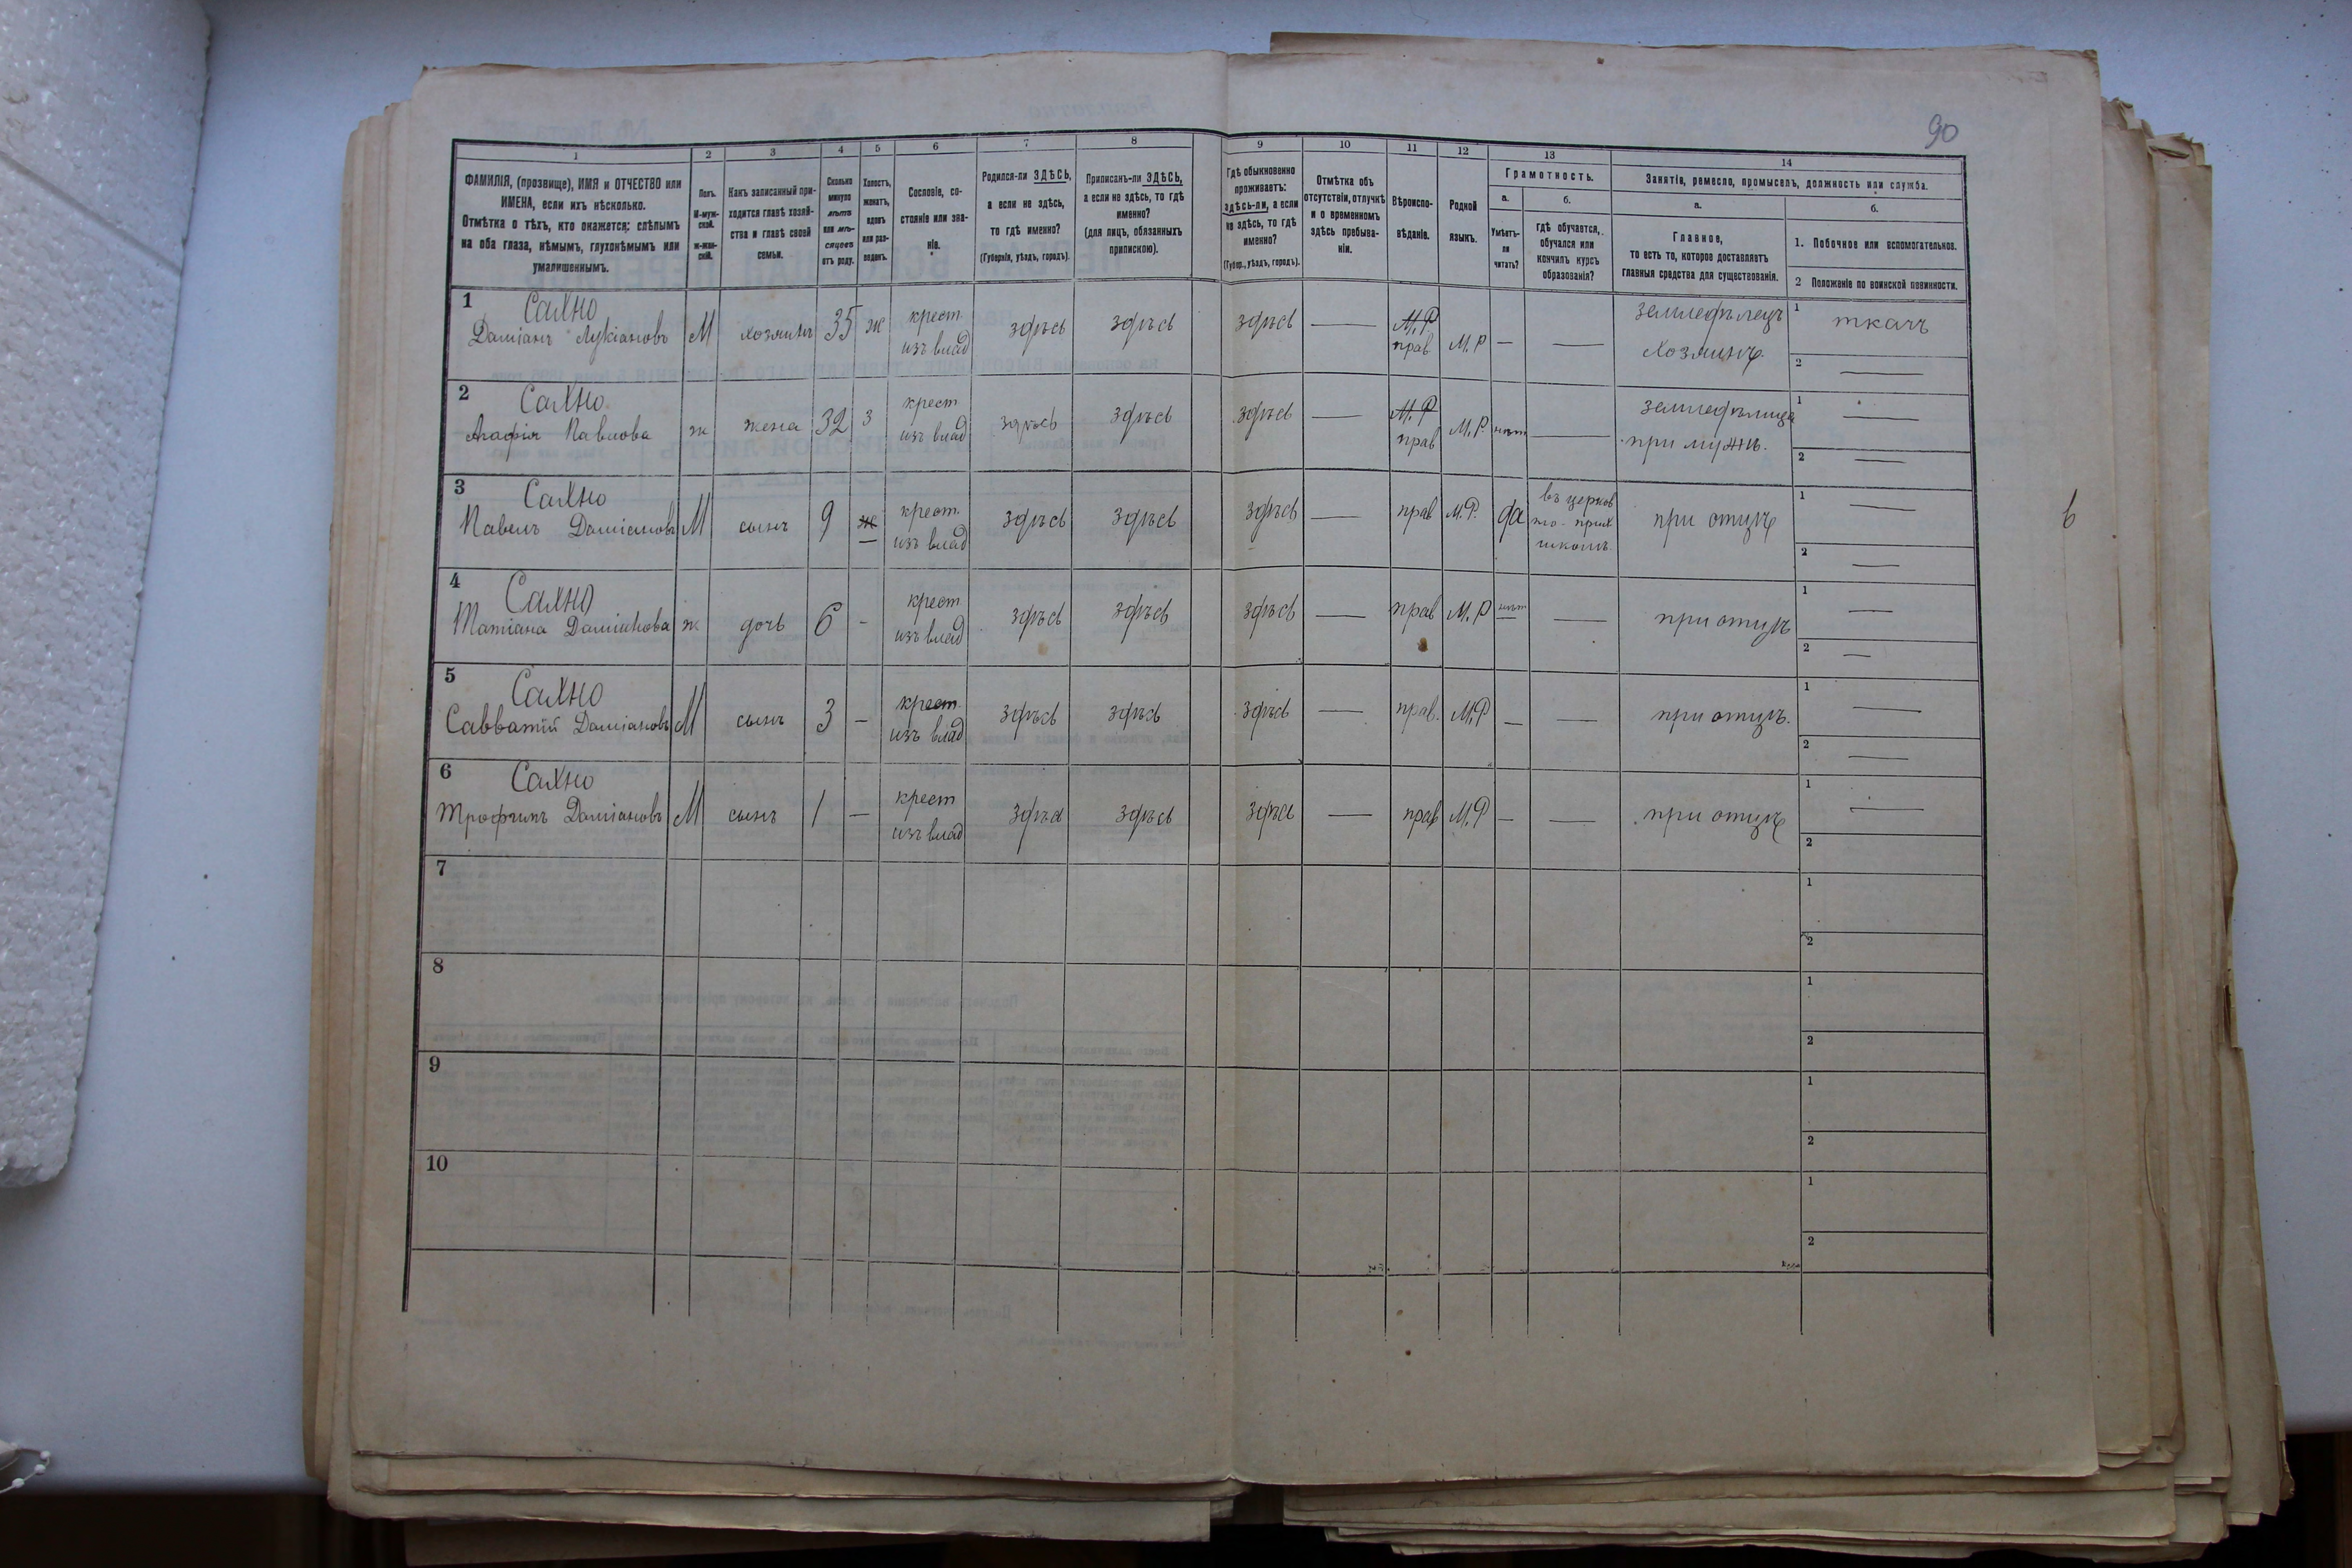 90
1 2 3 4 5 6 7 8 9 10 11 12 13 14
ФАМИЛІЯ, (прозвище), ИМЯ и ОТЧЕСТВО или
ИМЕНА, если ихъ нѣсколько.
Отмѣтка о тѣхъ, кто окажется: слѣпымъ
на оба глаза, нѣмымъ, глухонѣмымъ или
умалишеннымъ.
Полъ.
М-муж-
ской.
ж-жен-
скій.
Какъ записанный при-
ходится главѣ хозяй-
ства и главѣ своей
семьи.
Сколько
минуло
лѣтъ
или мѣ-
сяцевъ
отъ роду.
Холостъ,
женатъ,
вдовъ
или раз-
веденъ.
Сословіе, со-
стояніе или зва-
ніе.
Родился-ли ЗДѢСЬ,
а если не здѣсь,
то гдѣ именно?
(Губернія, уѣздъ, городъ).
Приписанъ-ли ЗДѢСЬ,
а если не здѣсь, то гдѣ
именно?
(для лицъ, обязанныхъ
припискою).
Гдѣ обыкновенно
проживаетъ:
здѣсь-ли, а если
не здѣсь, то гдѣ
именно?
(Губер., уѣздъ, городъ).
Отмѣтка объ
отсутствіи, отлучкѣ
и о временномъ
здѣсь пребыва-
ніи.
Вѣроиспо-
вѣданіе.
Родной
языкъ.
Грамотность.
а.
Умѣетъ-
ли
читать?
б.
гдѣ обучается,
обучался или
кончилъ курсъ
образованія?
Занятія, ремесло, промыселъ, должность или служба.
а.
Главное,
то есть то, которое доставляетъ
главныя средства для существованія.
б.
1. Побочное или вспомогательное.
2 Положеніе по воинской повинности.
1 Сахно
Даміанъ Лукіановъ М хозяинъ 35 ж крест. изъ влад здѣсь здѣсь здѣсь — М.Р. прав М.Р — — земледѣлецъ хозяинъ. 1 ткачъ
2 —
2 Сахно
Агафія Павлова ж жена 32 з крест изъ влад здѣсь здѣсь здѣсь — М.Р прав М.Р нѣт — земледѣлица при мужѣ. 1 —
2 —
3 Сахно
Павелъ Даміановъ М сынъ 9 ж — крест. изъ влад здѣсь здѣсь здѣсь — прав М.Р. да въ церков но-прих школѣ. при отцѣ 1 —
2 —
4 Сахно
Татіана Даміанова ж дочь 6 - крест. изъ влад здѣсь здѣсь здѣсь — прав М.Р нѣт — при отцѣ 1 —
2 —
5 Сахно
Савватій Даміановъ М сынъ 3 — крест. изъ влад здѣсь здѣсь здѣсь — прав. М.Р — — при отцѣ. 1 —
2 —
6 Сахно
Трофимъ Даміановъ М сынъ 1 — крест изъ влад здѣсь здѣсь здѣсь — прав М.Р — — при отцѣ 1 —
2
7 1
2
8 1
2
9 1
2
10 1
2